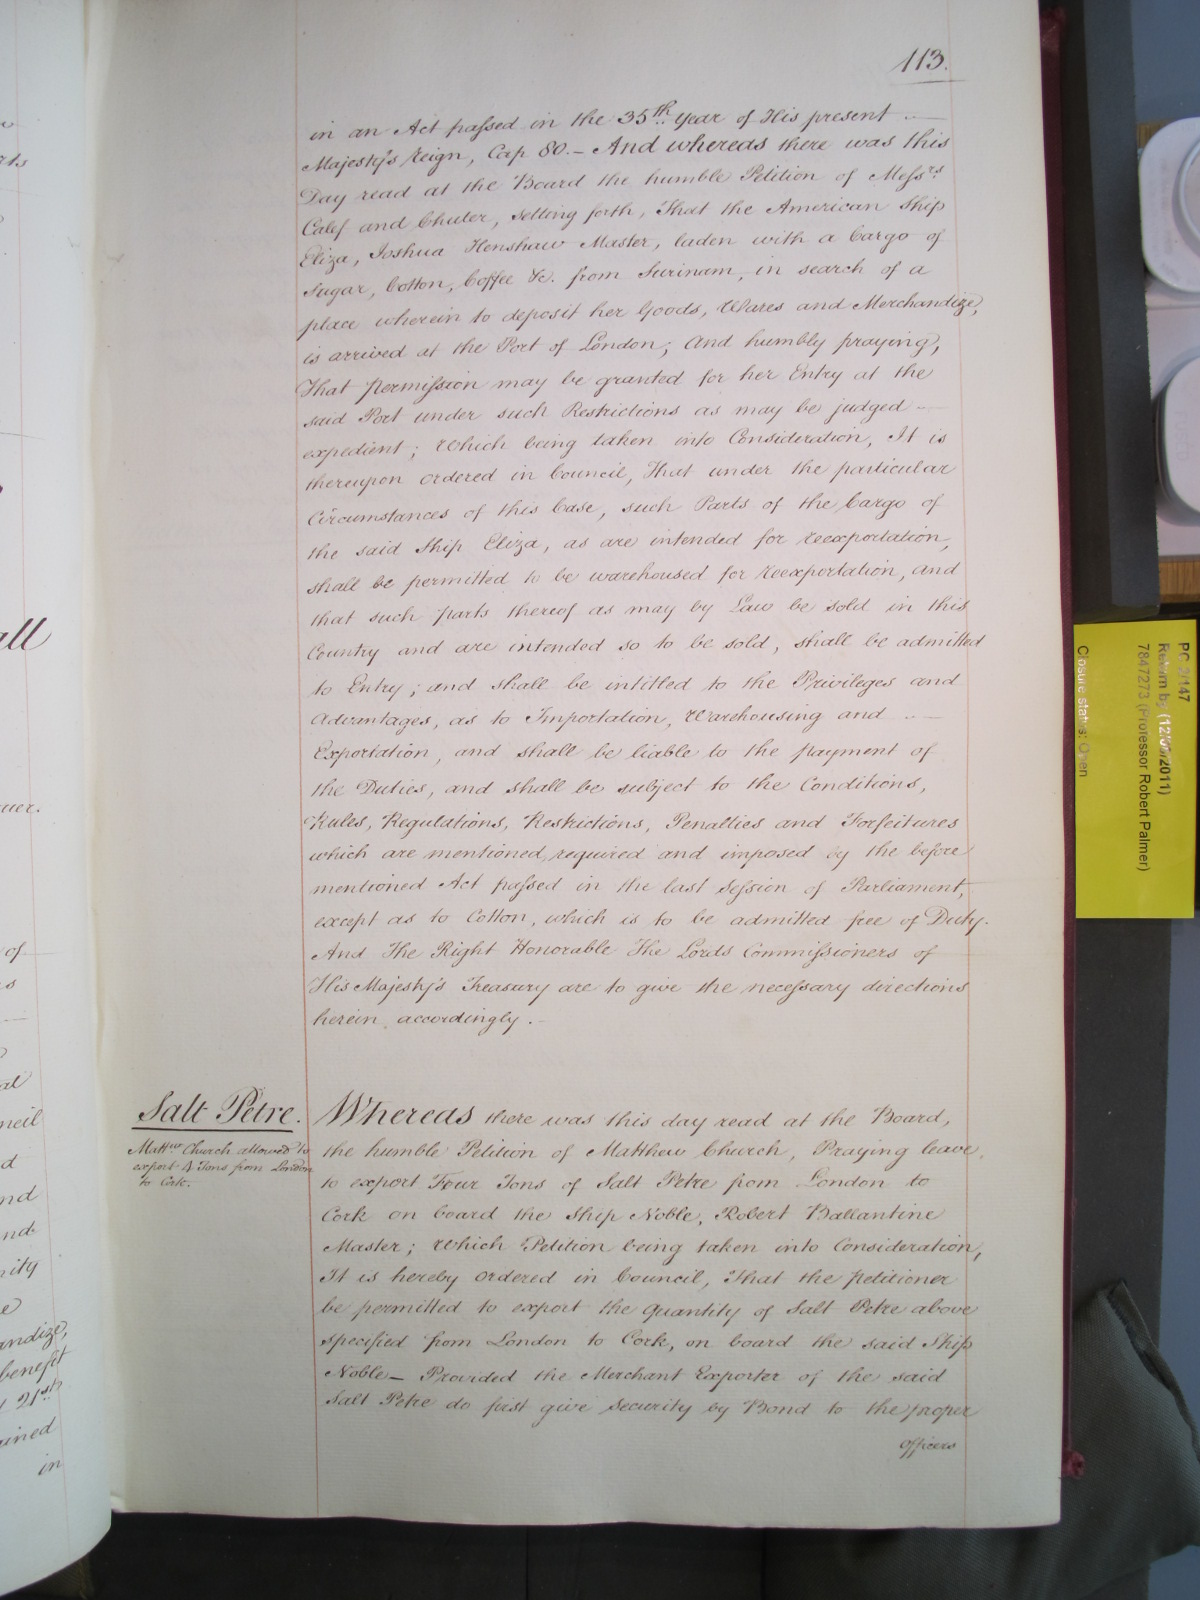 113.
in an Act passed in the 35th year of His present
Majesty's Reign, Cap 80.— And whereas there was this
Day read at the Board the humble Petition of Messrs
Calef and Chuter, setting forth, That the American Ship
Eliza, Joshua Henshaw Master, laden with a Cargo of
Sugar, Cotton, Coffee &c. from Surinam, in search of a
place wherein to deposit her Goods, Wares and Merchandize,
is arrived at the Port of London; And humbly praying,
That permission may be granted for her Entry at the
said Port under such Restrictions as may be judged
expedient; Which being taken into Consideration, It is
thereupon ordered in Council, That under the particular
Circumstances of this Case, such Parts of the Cargo of
the said Ship Eliza, as are intended for Reexportation,
shall be permitted to be warehoused for Reexportation, and
that such parts thereof as may by Law be sold in this
Country and are intended so to be sold, shall be admitted
to Entry; and shall be intitled to the Privileges and
Advantages, as to Importation, Warehousing and
Exportation, and shall be liable to the payment of
the Duties, and shall be subject to the Conditions,
Rules, Regulations, Restrictions, Penalties and Forfeitures
which are mentioned, required and imposed by the before
mentioned Act passed in the last Session of Parliament,
except as to Cotton, which is to be admitted free of Duty.
And The Right Honorable The Lords Commissioners of
His Majesty's Treasury are to give the necessary directions
herein accordingly.—
Salt Petre.
Mattw Church allowed to
export 4 Tons from London
to Cork.
Whereas there was this day read at the Board,
the humble Petition of Matthew Church, Praying leave
to export Four Tons of Salt Petre from London to
Cork on board the Ship Noble, Robert Ballantine
Master; Which Petition being taken into Consideration,
It is hereby ordered in Council, That the petitioner
be permitted to export the Quantity of Salt Petre above
specified from London to Cork, on board the said Ship
Noble— Provided the Merchant Exporter of the said
Salt Petre do first give Security by Bond to the proper
officers
all
of
neil
nd
andize,
benefit
21st
in
PC 2/147
Return by (12/05/2011)
7847273 (Professor Robert Palmer)
Closure status: Open